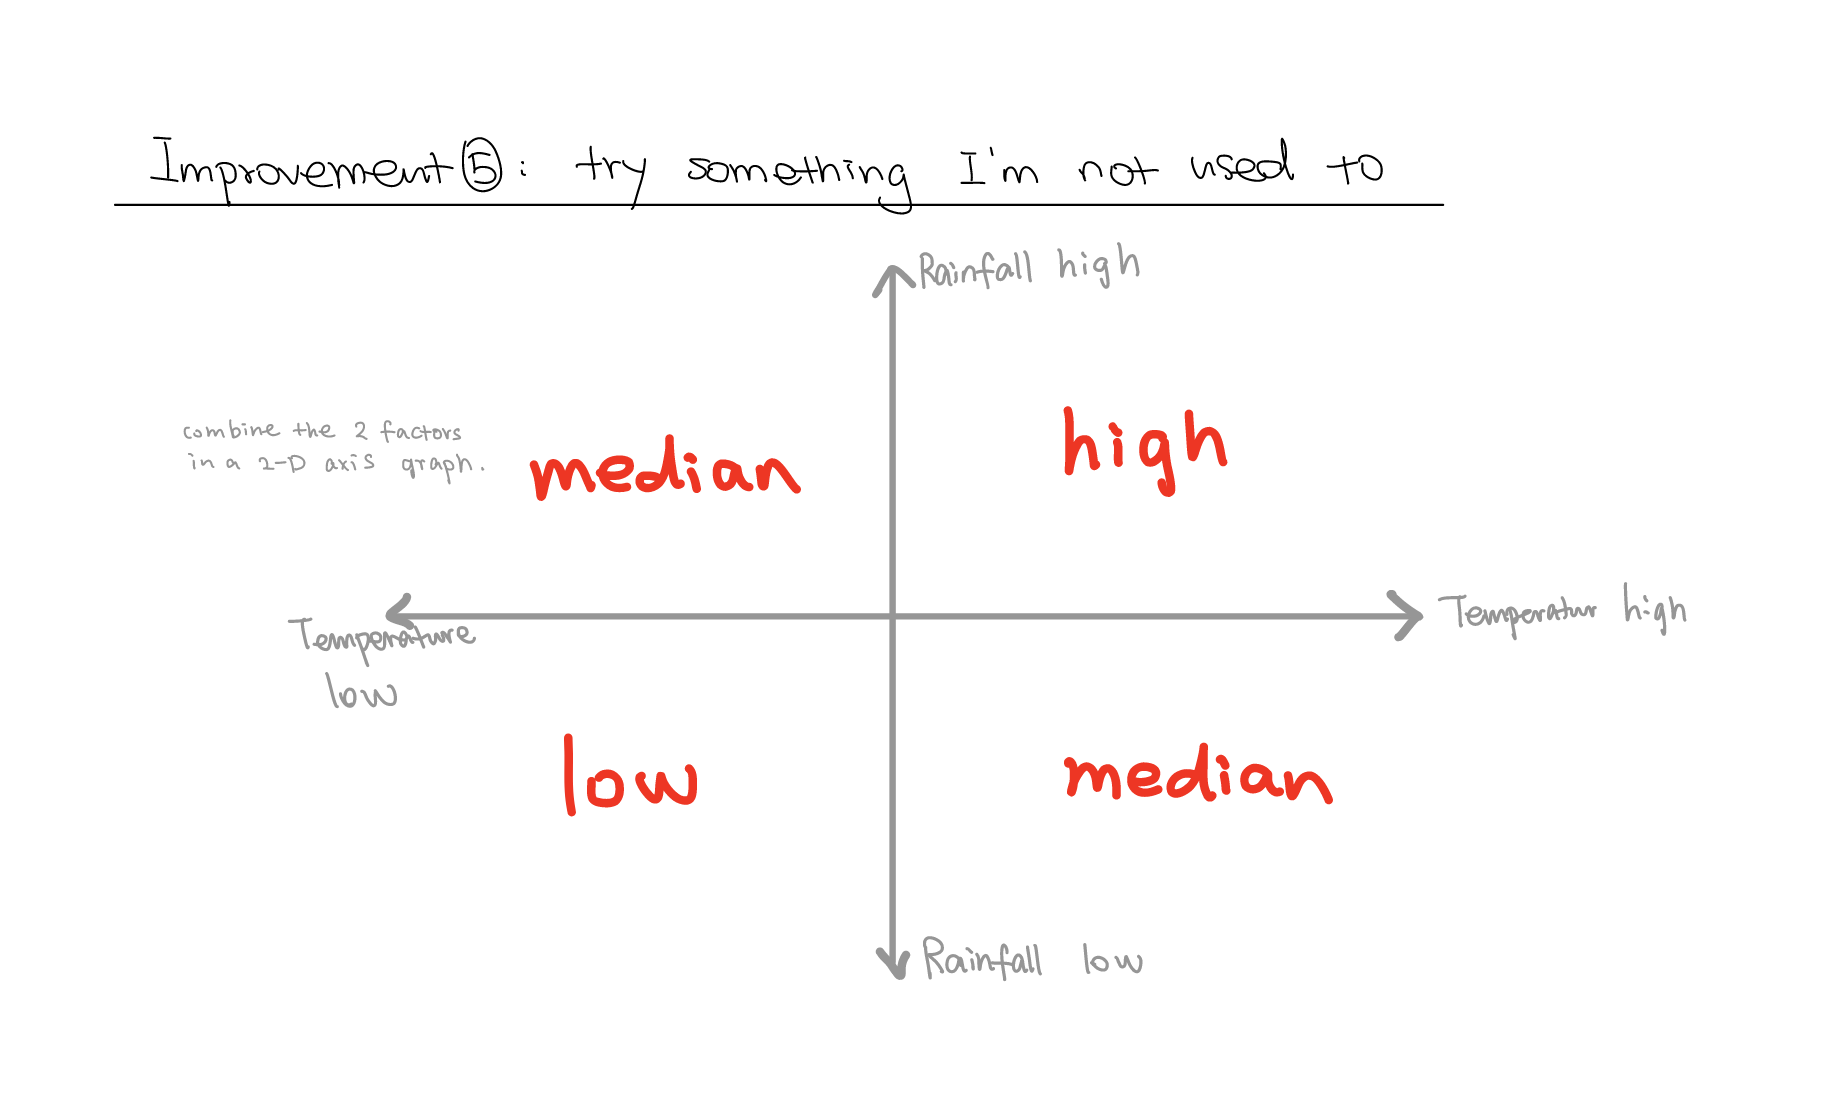 Improvement⑤: try something I'm not used to
Rainfall high
combine the 2 factors
in a 2-D axis graph.
median
high
Temperature
low
Temperatur high
low
median
Rainfall low